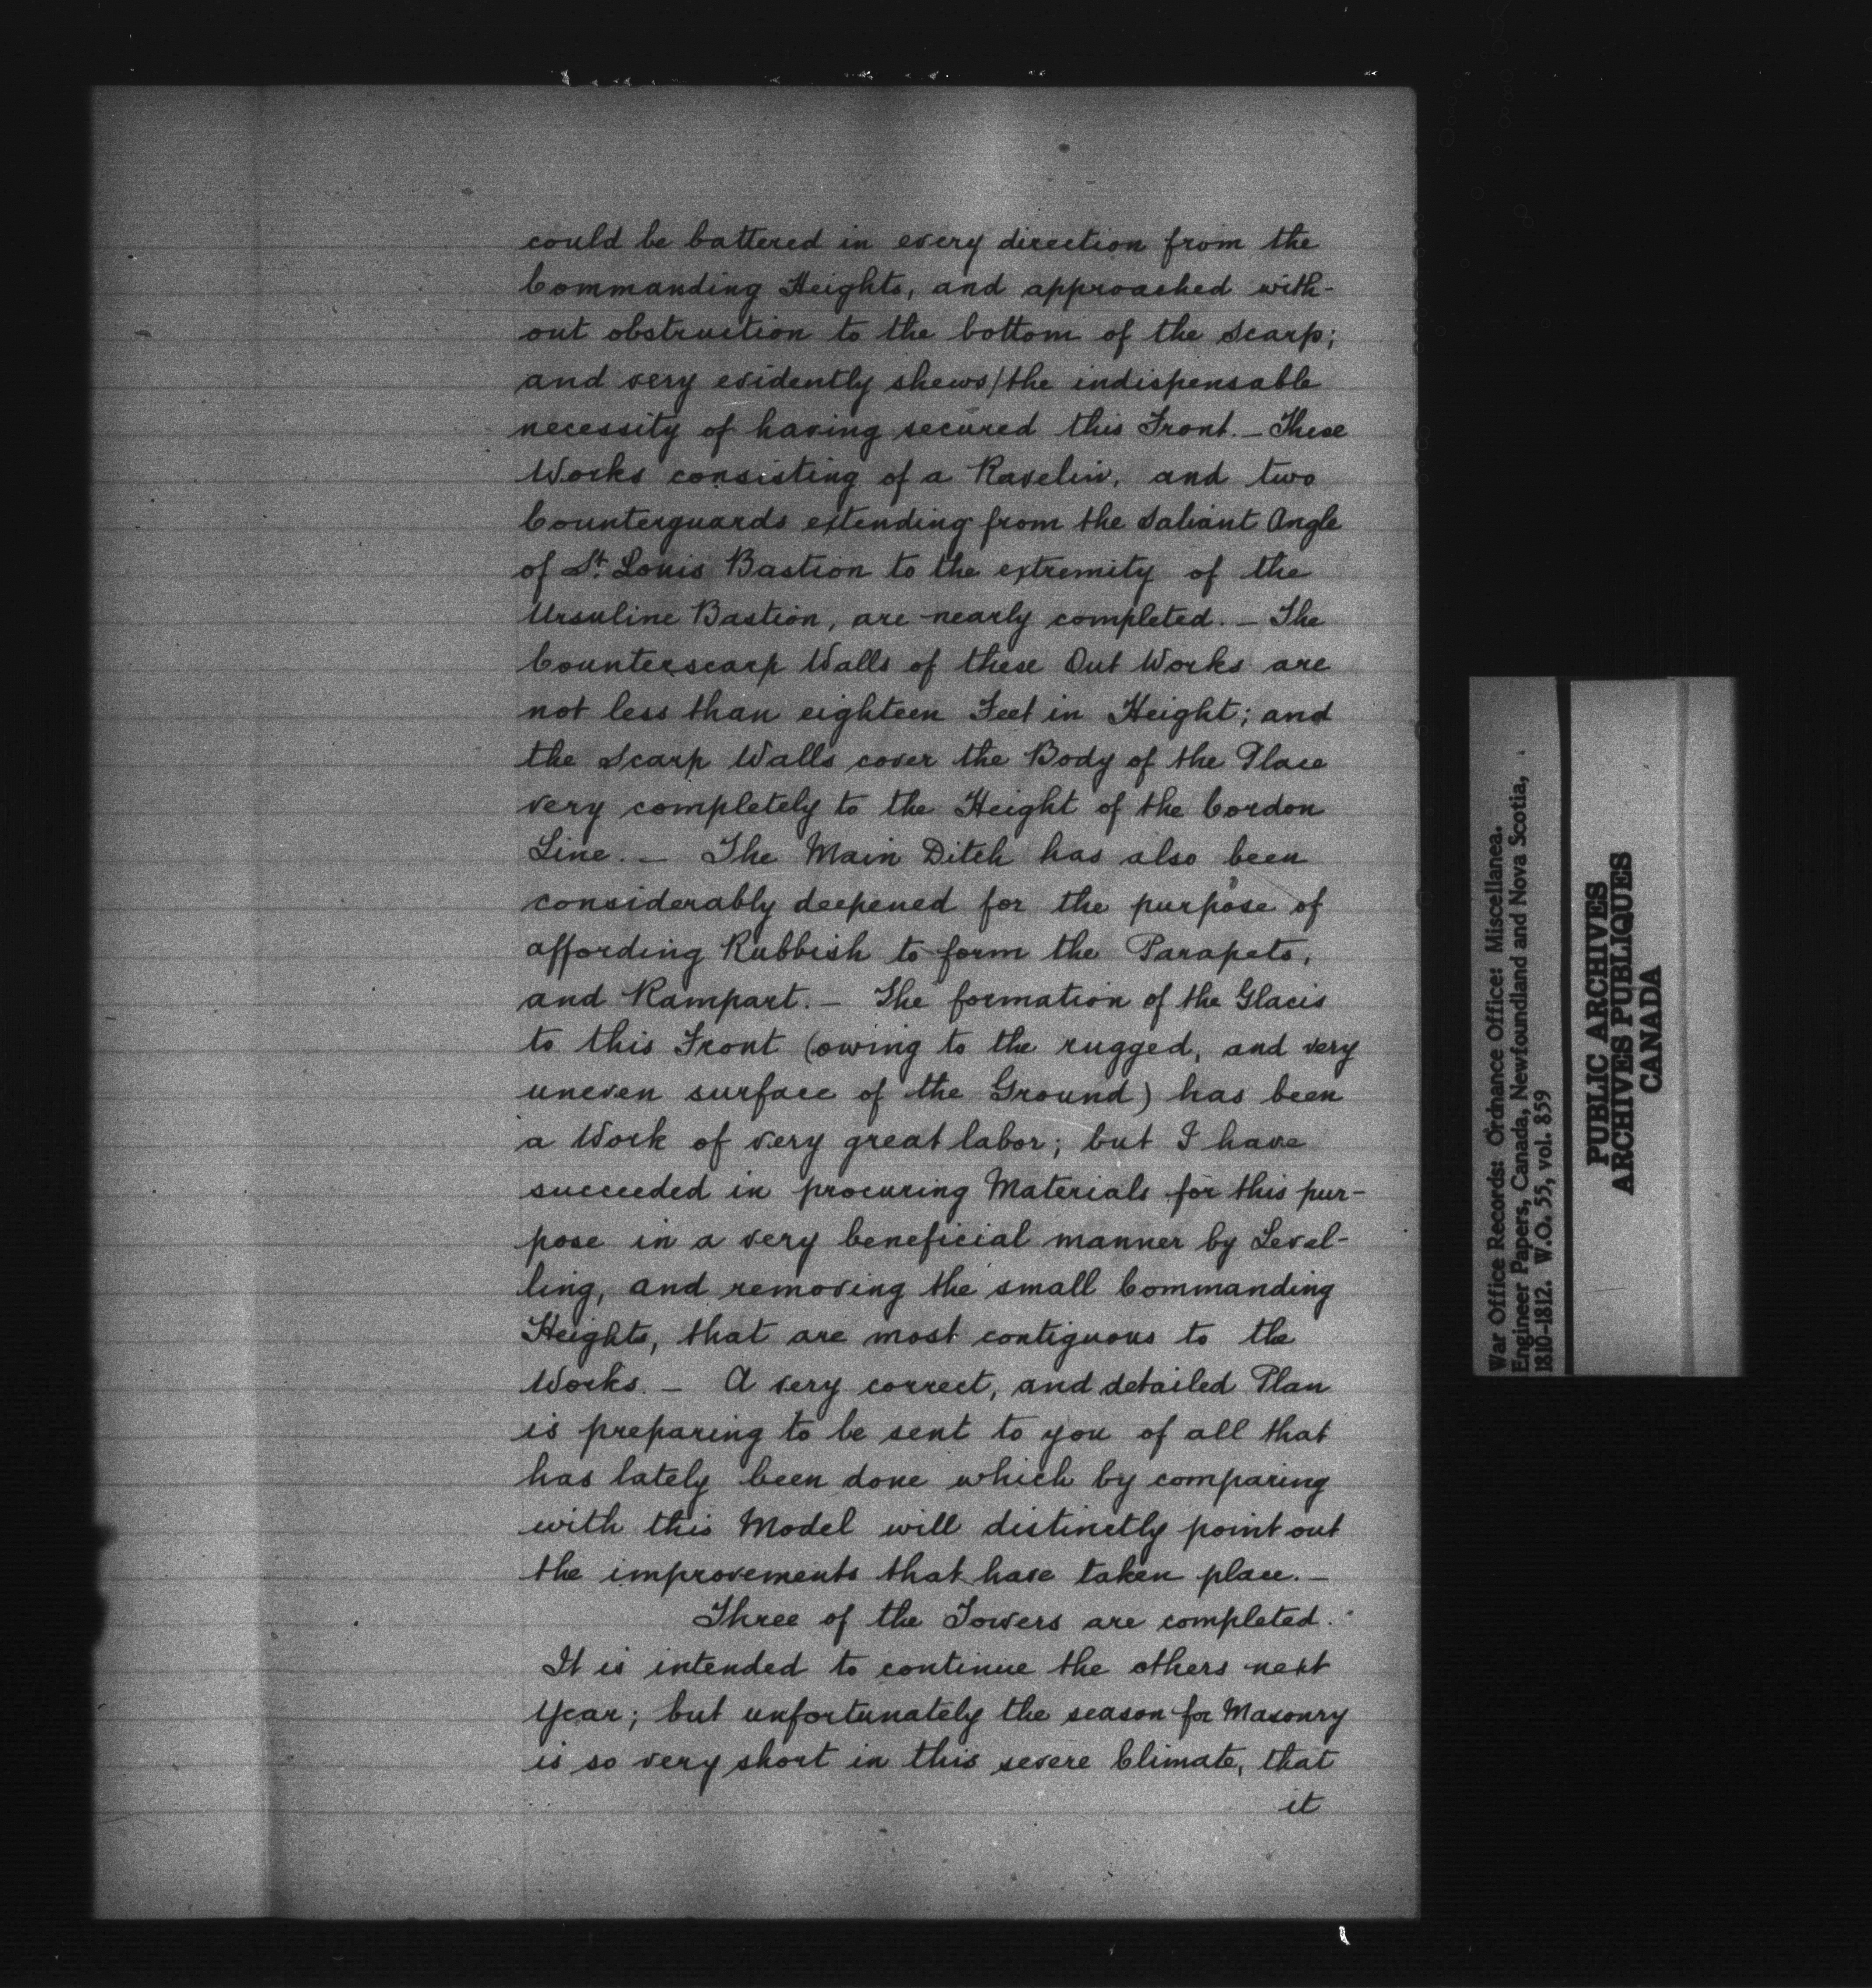 could be battered in every direction from the
Commanding Heights, and approached with-
out obstruction to the bottom of the Scarp;
and very evidently shews/the indispensable
necessity of having secured this Front. — These
Works consisting of a Ravelin, and two
Counterguards extending from the Saliant Angle
of St. Louis Bastion to the extremity of the
Ursuline Bastion, are nearly completed. — The
Counterscarp Walls of these Out Works are
not less than eighteen Feet in Height; and
the Scarp Walls cover the Body of the Place
very completely to the Height of the Cordon
Line. — The Main Ditch has also been
considerably deepened for the purpose of
affording Rubbish to form the Parapets,
and Rampart. — The formation of the Glacis
to this Front (owing to the rugged, and very
uneven surface of the Ground) has been
a Work of very great labor; but I have
succeeded in procuring Materials for this pur-
pose in a very beneficial manner by Level-
ling, and removing the small Commanding
Heights, that are most contiguous to the
Works. — A very correct, and detailed Plan
is preparing to be sent to you of all that
has lately been done which by comparing
with this Model will distinctly point out
the improvements that have taken place. —
Three of the Towers are completed.
It is intended to continue the others next
Year; but unfortunately the season for Masonry
is so very short in this severe Climate, that
it
War Office Records: Ordnance Office: Miscellanea.
Engineer Papers, Canada, Newfoundland and Nova Scotia,
1810-1812. W.O. 55, vol. 859
PUBLIC ARCHIVES
ARCHIVES PUBLIQUES
CANADA